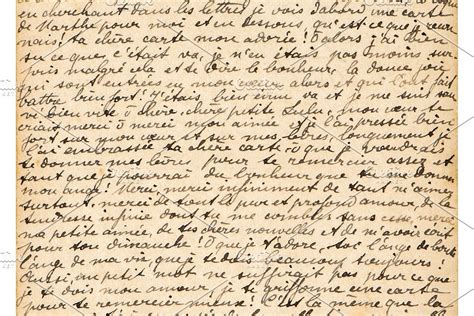 en cherchant dans les lettres, je vois d'abord une carte
de Marthe pour moi et en dessous, qu'est-ce que je recon
nais! ta chère carte mon adorée! Alors j'ai bien
su ce que c'était va, je n'en étais pas moins sur
pois malgré cela et de dire le bonheur, la douce joie
qui sont entrés en mon cœur alors et qui l'ont fait
battre bien fort! C'était bien lui va et je me suis
vi bien vite ô chère, chère petite Lulu, mon cœur te
criait merci ô merci mon aimée et je l'ai pressée bien
fort sur mon cœur et sur mes lèvres, longuement je
l'ai embrassée ta chère carte ô que je voudrais
te donner mes lèvres pour te remercier assez et
tant que je pourrai du bonheur que tu me donnes
mon ange! Merci, merci infiniment de tant m'aimer
surtout, merci de ton si pur et profond amour, de la
tendresse infinie dont tu me combles sans cesse, merci
ma petite aimée, de tes chères nouvelles et de m'avoir écrit
pour ton dimanche! O que je t'adore, toi l'ange de bonté
l'ange de ma vie, que je te dois beaucoup toujours!
Aussi, un petit mot ne suffirait pas pour ce que
je te dois mon amour, je te griffonne une carte
pour te remercier mieux! C'est la même que la